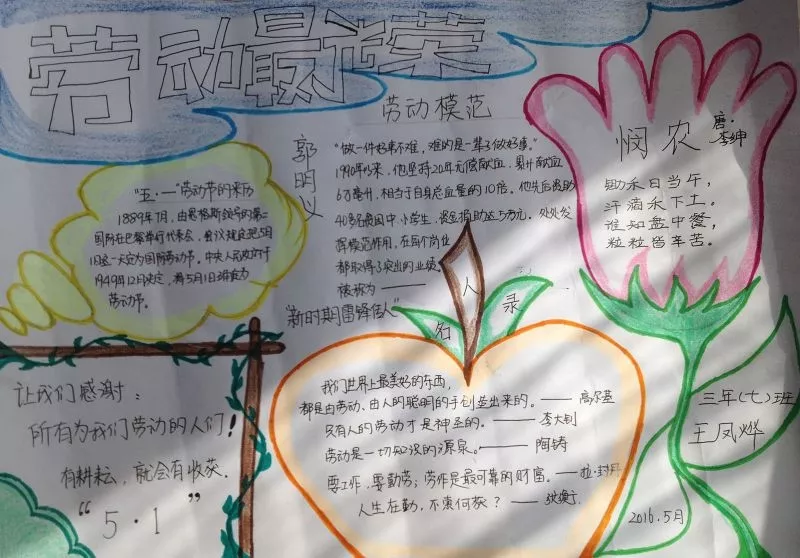 劳动最光荣
劳动模范
郭明义
"做一件好事不难,难的是一辈子做好事。"
1990年以来,他坚持20年无偿献血,累计献血
6万毫升,相当于自身总血量的10倍。他先后资助
40多名贫困中小学生,资金捐助达5万元。处处发
挥模范作用,在每个岗位
都取得了突出的业绩。
被称为——
"新时期雷锋传人"
悯农
唐·李绅
锄禾日当午,
汗滴禾下土。
谁知盘中餐,
粒粒皆辛苦。
"五·一"劳动节的来历
1889年7月,由恩格斯领导的第二
国际在巴黎举行代表会。会议规定把5月
1日这一天定为国际劳动节。中央人民政府于
1949年12月决定,将5月1日确定为
劳动节。
让我们感谢:
所有为我们劳动的人们!
有耕耘,就会有收获.
"5·1"
名人录
我们世界上最美好的东西,
都是由劳动、由人的聪明的手创造出来的。——高尔基
只有人的劳动才是神圣的。——李大钊
劳动是一切知识的源泉。——陶铸
要工作,要勤劳;劳作是最可靠的财富。——拉·封丹
人生在勤,不索何获?——张衡
三年(七)班
王凤烨
2016.5月